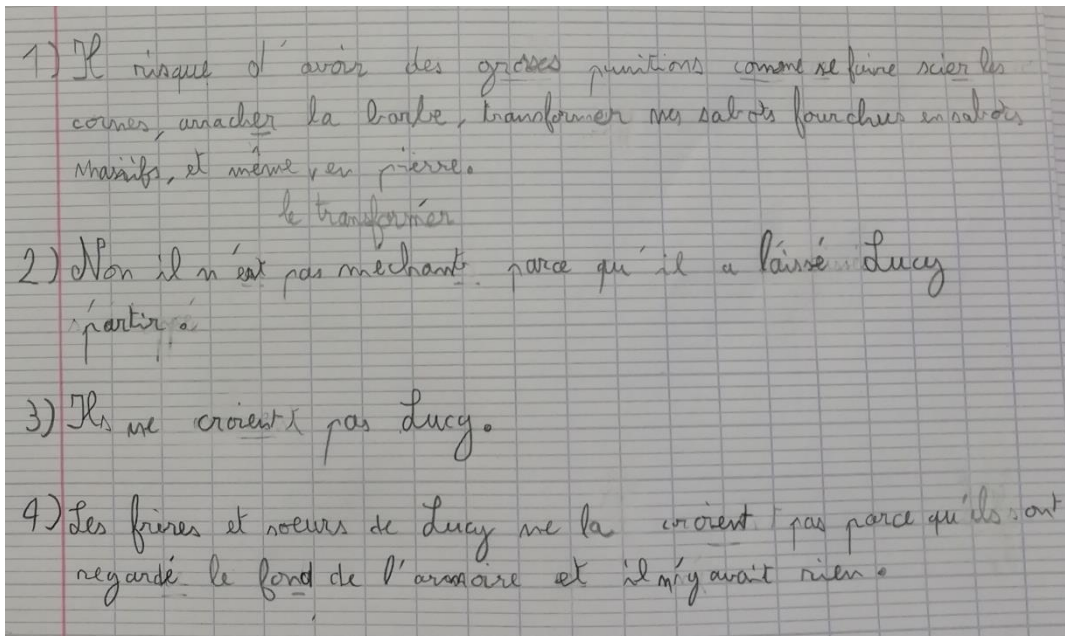 1) Il risque d'avoir des grosses punitions comme se faire scier les
cornes, arracher la barbe, transformer ses sabots fourchus en sabots
massifs, et même, en pierre.
le transformer
2) Non il n'est pas méchant parce qu'il a laissé Lucy
partir.
3) Ils ne croient pas Lucy.
4) Les frères et soeurs de Lucy ne la croient pas parce qu'ils ont
regardé le fond de l'armoire et il n'y avait rien.